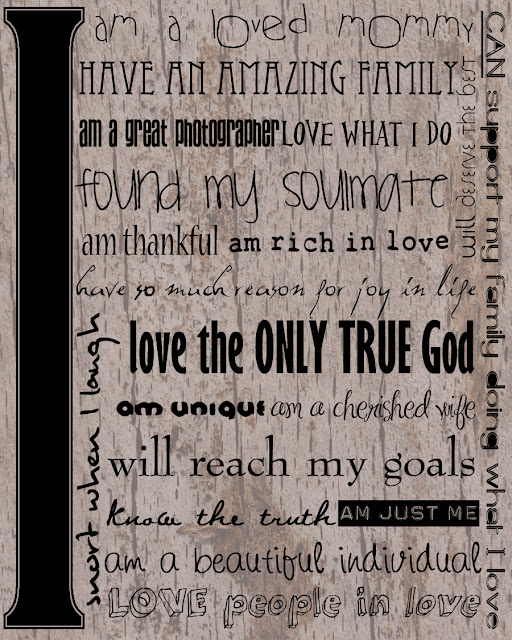 I
am a loved mommy
HAVE AN AMAZING FAMILY
am a great photographer LOVE WHAT I DO
found my soulmate
am thankful am rich in love
have so much reason for joy in life
love the ONLY TRUE God
am unique am a cherished wife
will reach my goals
know the truth AM JUST ME
am a beautiful individual
LOVE people in love
snort when I laugh
will deserve the best
CAN support my family doing what I love